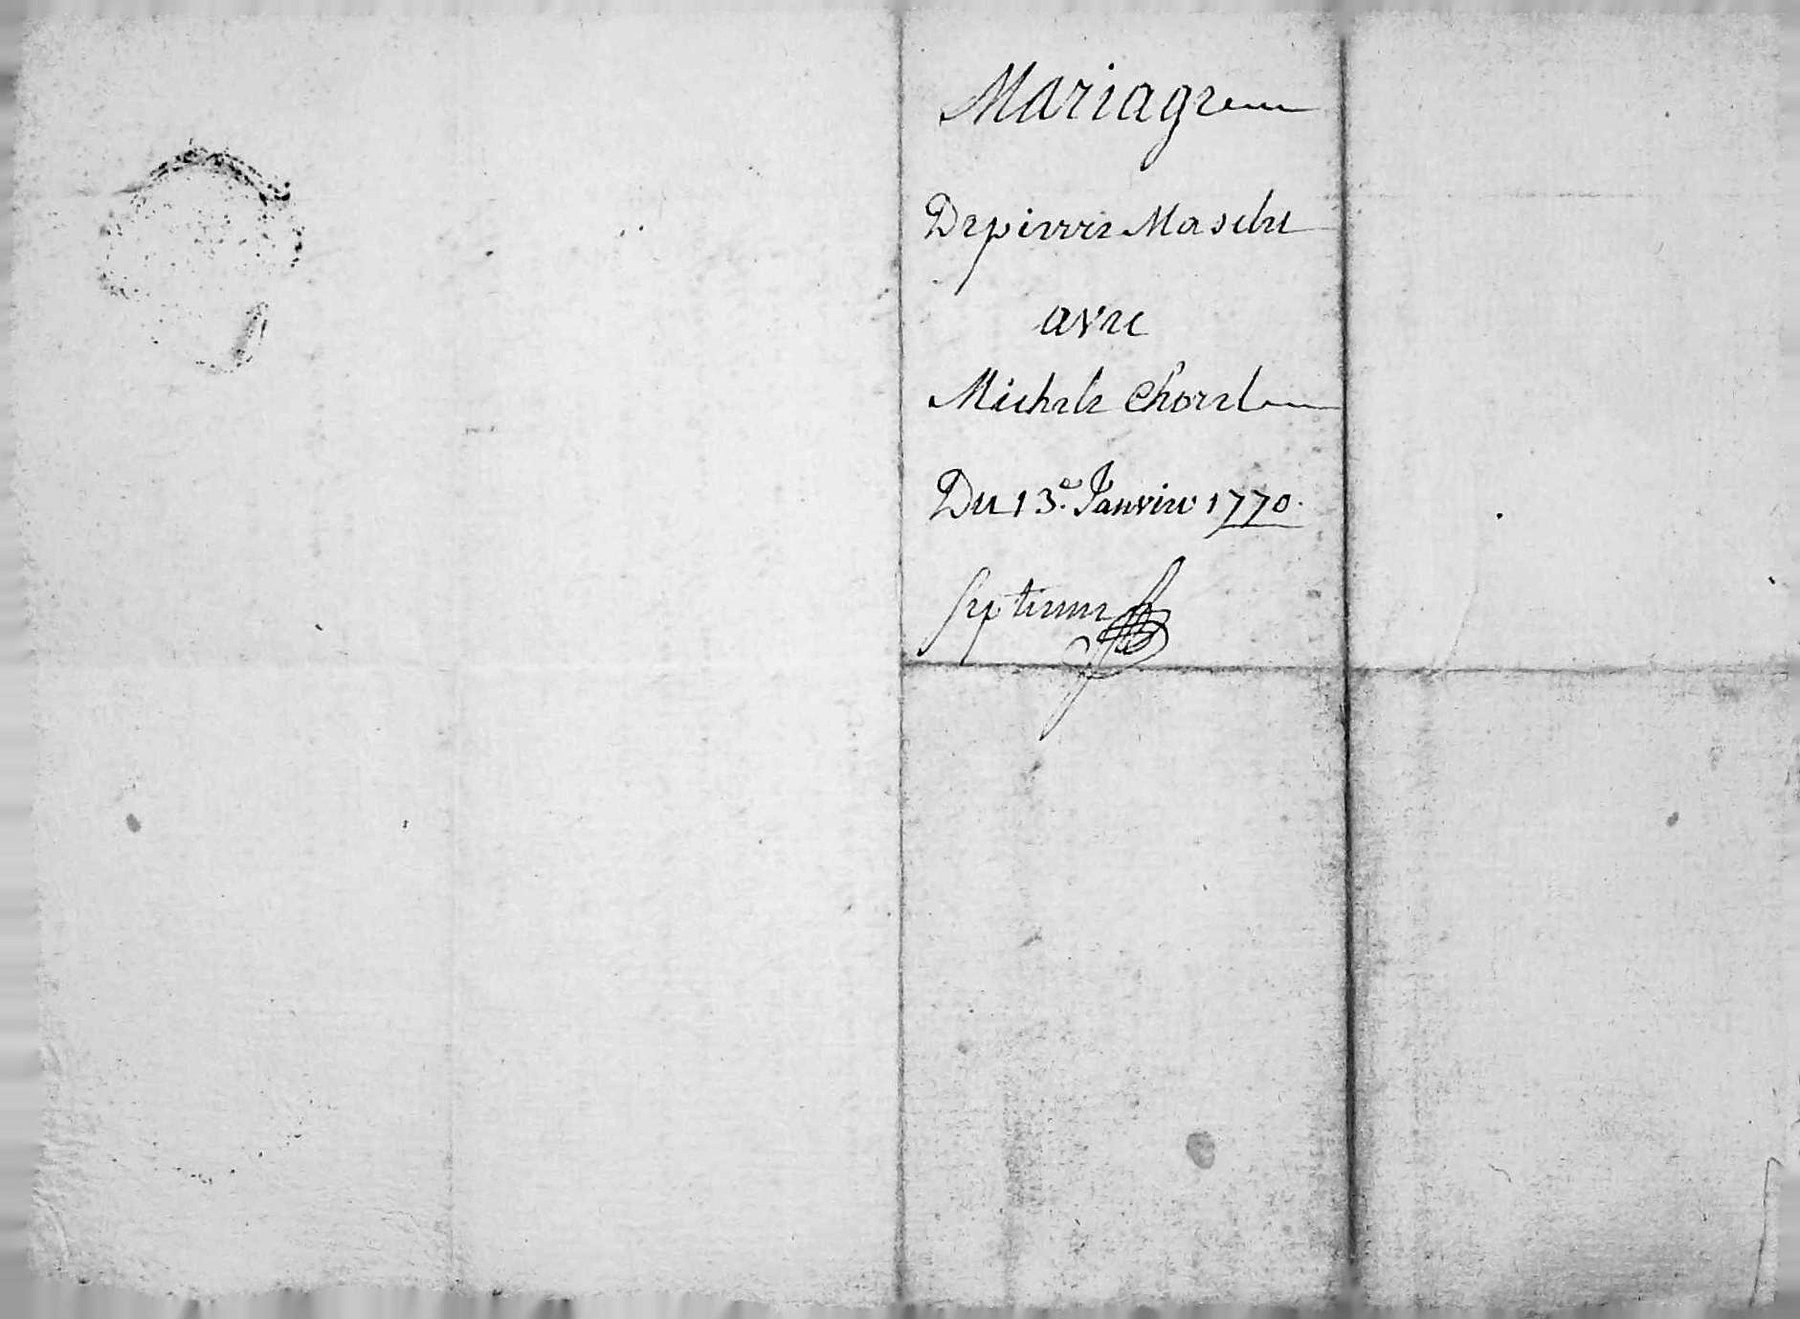 Mariage
De pierre Masclet
avec
Michele Chorel
Du 13.e Janvier 1770.
septieme